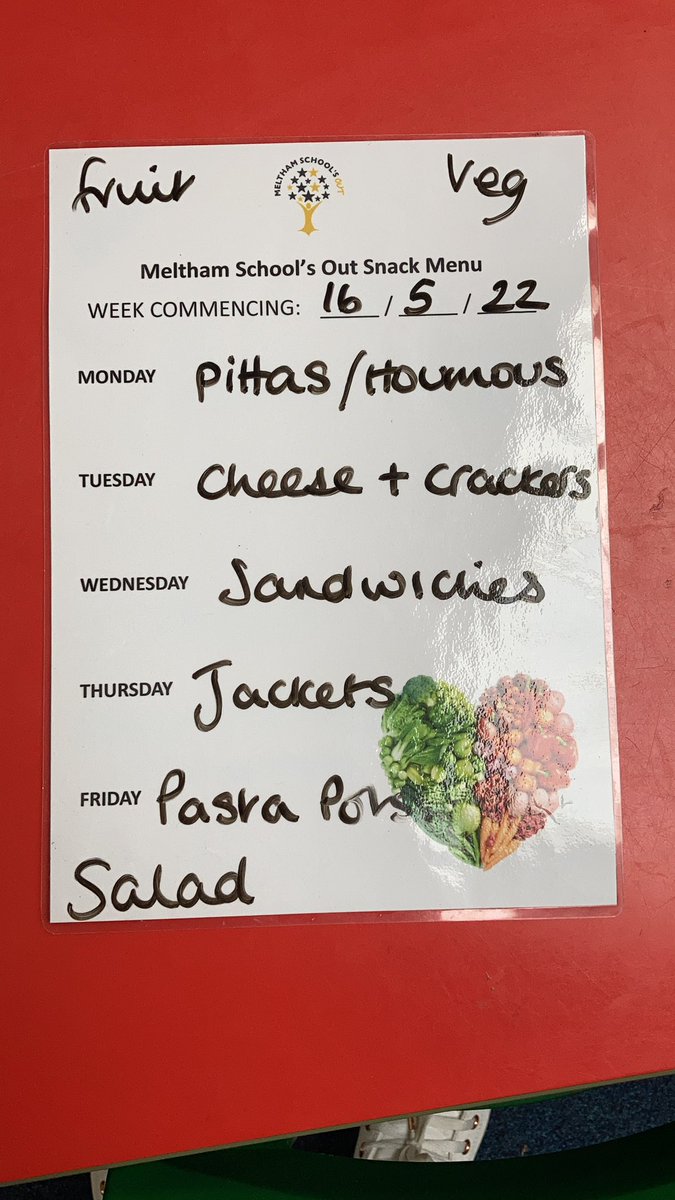 fruit
Veg
MELTHAM SCHOOL'S OUT
Meltham School's Out Snack Menu
WEEK COMMENCING: 16 / 5 / 22
MONDAY Pittas/Houmous
TUESDAY Cheese + Crackers
WEDNESDAY Sandwiches
THURSDAY Jackets
FRIDAY Pasta Pots
Salad